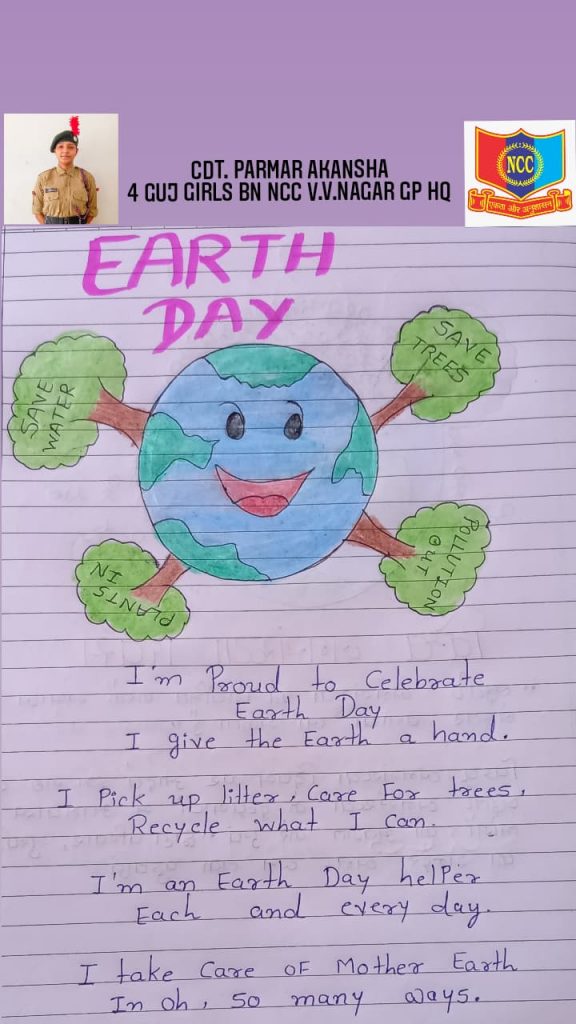 CDT. PARMAR AKANSHA
4 GUJ GIRLS BN NCC V.V.NAGAR GP HQ
NCC
एकता और अनुशासन
EARTH
DAY
SAVE
WATER
SAVE
TREES
PLANTS
IN
POLLUTION
OUT
I'm Proud to Celebrate
Earth Day
I give the Earth a hand.
I Pick up litter, Care For trees,
Recycle what I can.
I'm an Earth Day helper
Each and every day.
I take Care of Mother Earth
In oh, so many ways.